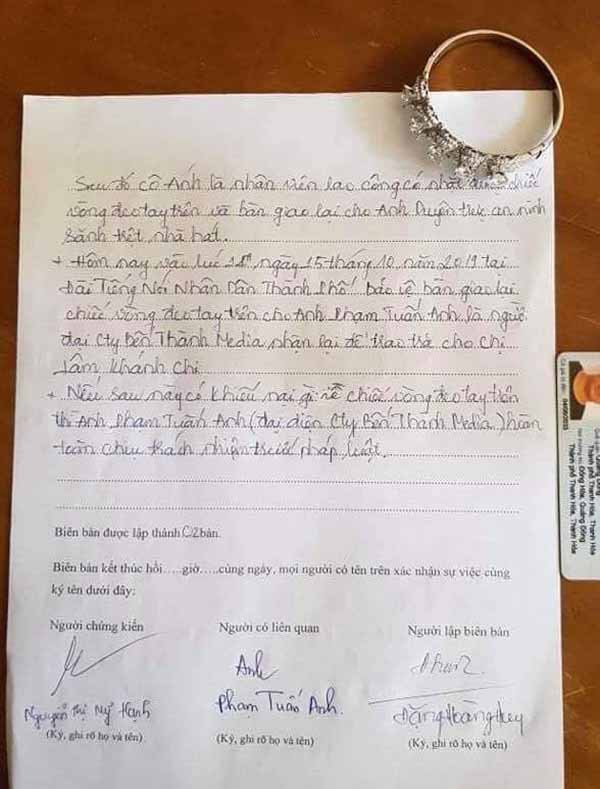 Sau đó cô Ánh là nhân viên lao công có nhặt được chiếc
vòng đeo tay trên và bàn giao lại cho Anh Duyên trực an ninh
Sảnh trệt nhà hát.
+ Hôm nay vào lúc ngày 15 tháng 10 năm 2019 tại
Đài Tiếng Nói Nhân Dân Thành Phố bảo vệ bàn giao lại
chiếc vòng đeo tay trên cho Anh Phạm Tuấn Anh là người
đại Cty Bến Thành Media nhận lại để trao trả cho Chị
Lâm Khánh Chi
+ Nếu sau này có khiếu nại gì về chiếc vòng đeo tay trên
thì Anh Phạm Tuấn Anh (đại diện Cty Bến Thành Media) hoàn
toàn chịu trách nhiệm trước pháp luật.
Biên bản được lập thành 02 bản.
Biên bản kết thúc hồi.....giờ.....cùng ngày, mọi người có tên trên xác nhận sự việc cùng
ký tên dưới đây:
Người chứng kiến Người có liên quan Người lập biên bản
Anh
Nguyễn Thị Mỹ Hạnh Phạm Tuấn Anh. Đặng Hoàng Huy
(Ký, ghi rõ họ và tên) (Ký, ghi rõ họ và tên) (Ký, ghi rõ họ và tên)
Có giá trị đến:
Thành phố Thanh Hóa, Thanh Hóa
Đông Hóa, Quảng Đông
Thành phố Thanh Hóa, Thanh Hóa